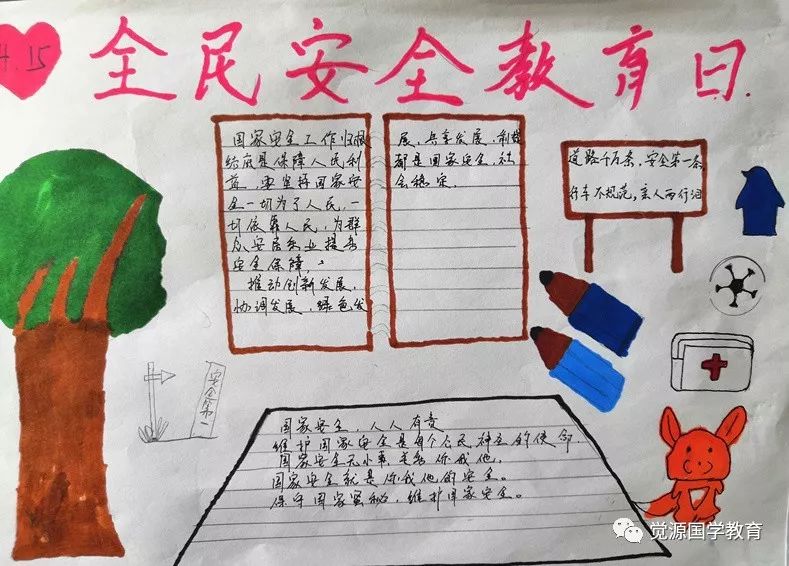 4.15
全民安全教育日
国家安全工作归根
结底是保障人民利
益，要坚持国家安
全一切为了人民，一
切依靠人民，为群
众安居乐业提务
安全保障，
推动创新发展，
协调发展，绿色发
展，共享发展，制措
都是国家安全，社
会稳定，
道路千万条，安全第一条
行车不规范，亲人两行泪
安全第一
国家安全，人人有责
维护国家安全是每个公民神圣的使命
国家安全无小事，关系你我他，
国家安全就是你我他的安全。
保守国家蜜秘，维护国家安全。
觉源国学教育